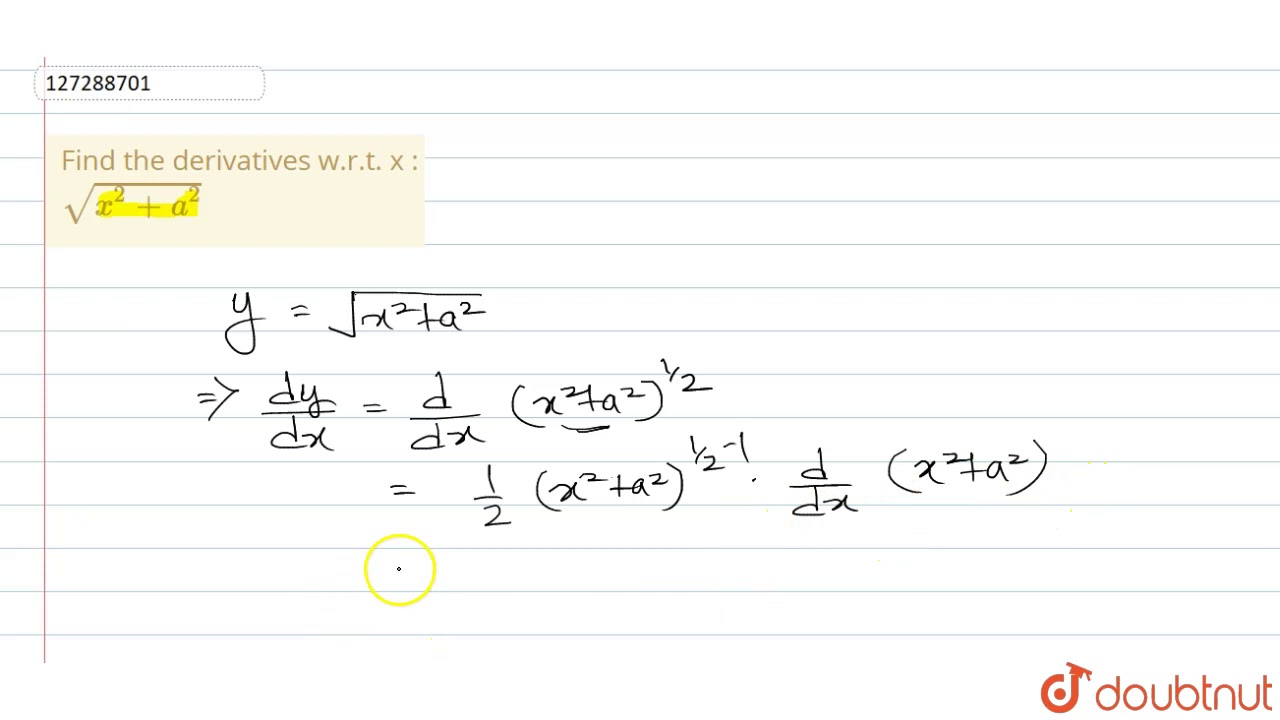 127288701
Find the derivatives w.r.t. x :
√(x² + a²)
y = √(x²+a²)
=> dy/dx = d/dx (x²+a²)^1/2
= 1/2 (x²+a²)^1/2-1 . d/dx (x²+a²)
doubtnut